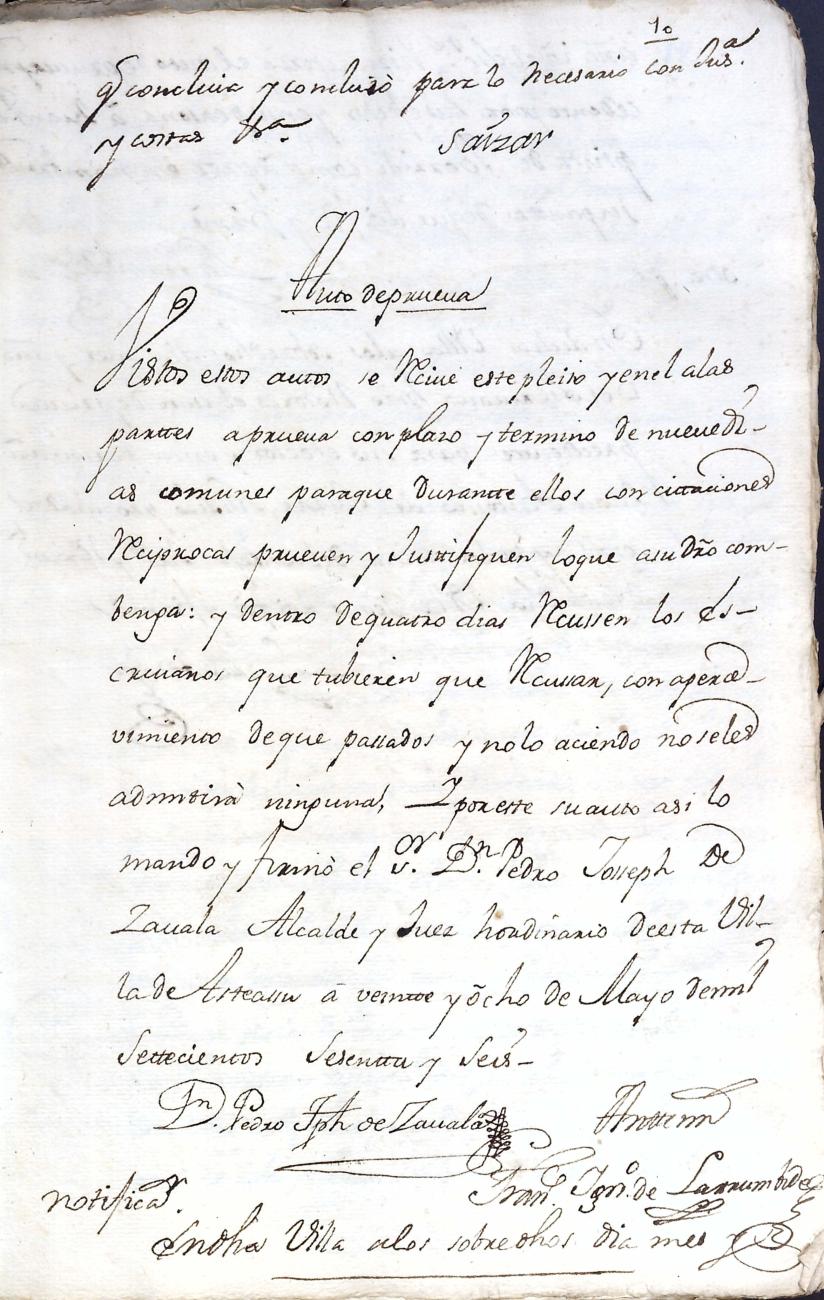 10
q̃ concluia y concluiò para lo necesario con Jusª.
y costas &ª. Saizar
Auto de prueva
Vistos estos autos se Recive este pleito y en el a las
parttes a prueva con plazo y termino de nueve di-
as comunes para que durantte ellos con cittaciones
Reciprocas prueven y Justtifiquen lo que a su dr̃o com-
benga: y dentro de quatro dias Recussen los es-
crivanos que tubieren que Recusar, con aperce-
vimiento de que passados y no lo aciendo no se les
admitirà ninguna, Y por este su auto asi lo
mando y firmò el Sor. Dn. Pedro Joseph de
Zavala Alcalde y Juez hordinario de esta Vil-
la de Asteassu â veintte y ôcho de Mayo de mil
Settecientos Sesentta y Seis-
Dn. Pedro Jph de Zavala
Antte mi
Franco. Igno. de Larrumbide
Notificaon.
En dha Villa a los sobre dhos dia mes y